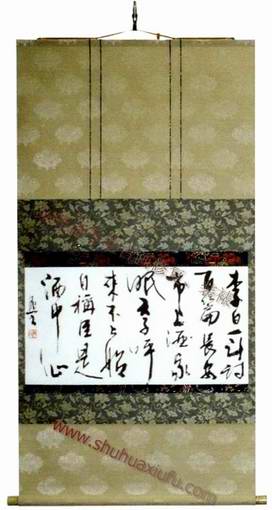 李白一斗詩
百篇長安
市上酒家
眠天子呼
來不上船
自稱臣是
酒中仙
www.shuhuaxiufu.com